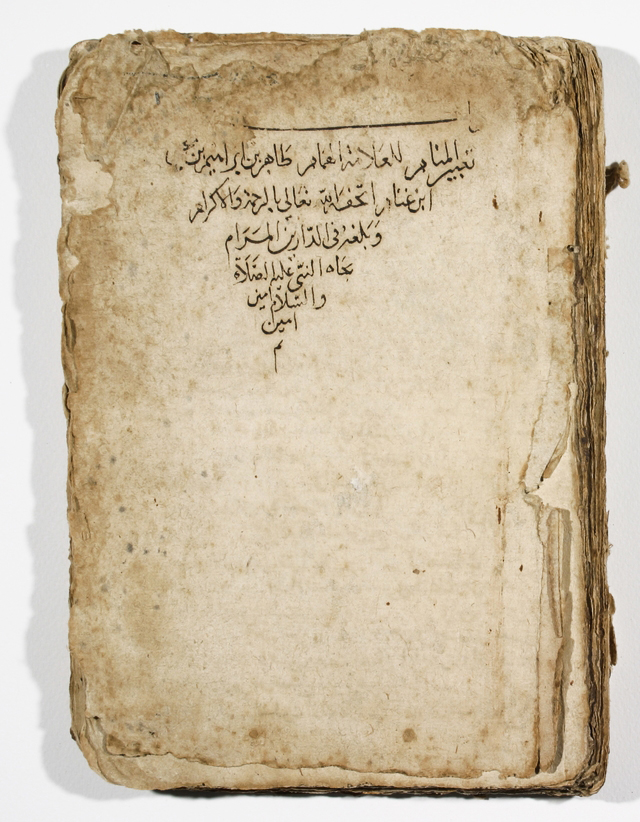 تعبير المنام للعلامة الهمام طاهر بن ابراهيم بن
ابن غنام اتحفه الله تعالى بالرحمة والاكرام
وبلغه في الدارين المرام
بجاه النبي عليه الصلاة
والسلام امين
امين
م